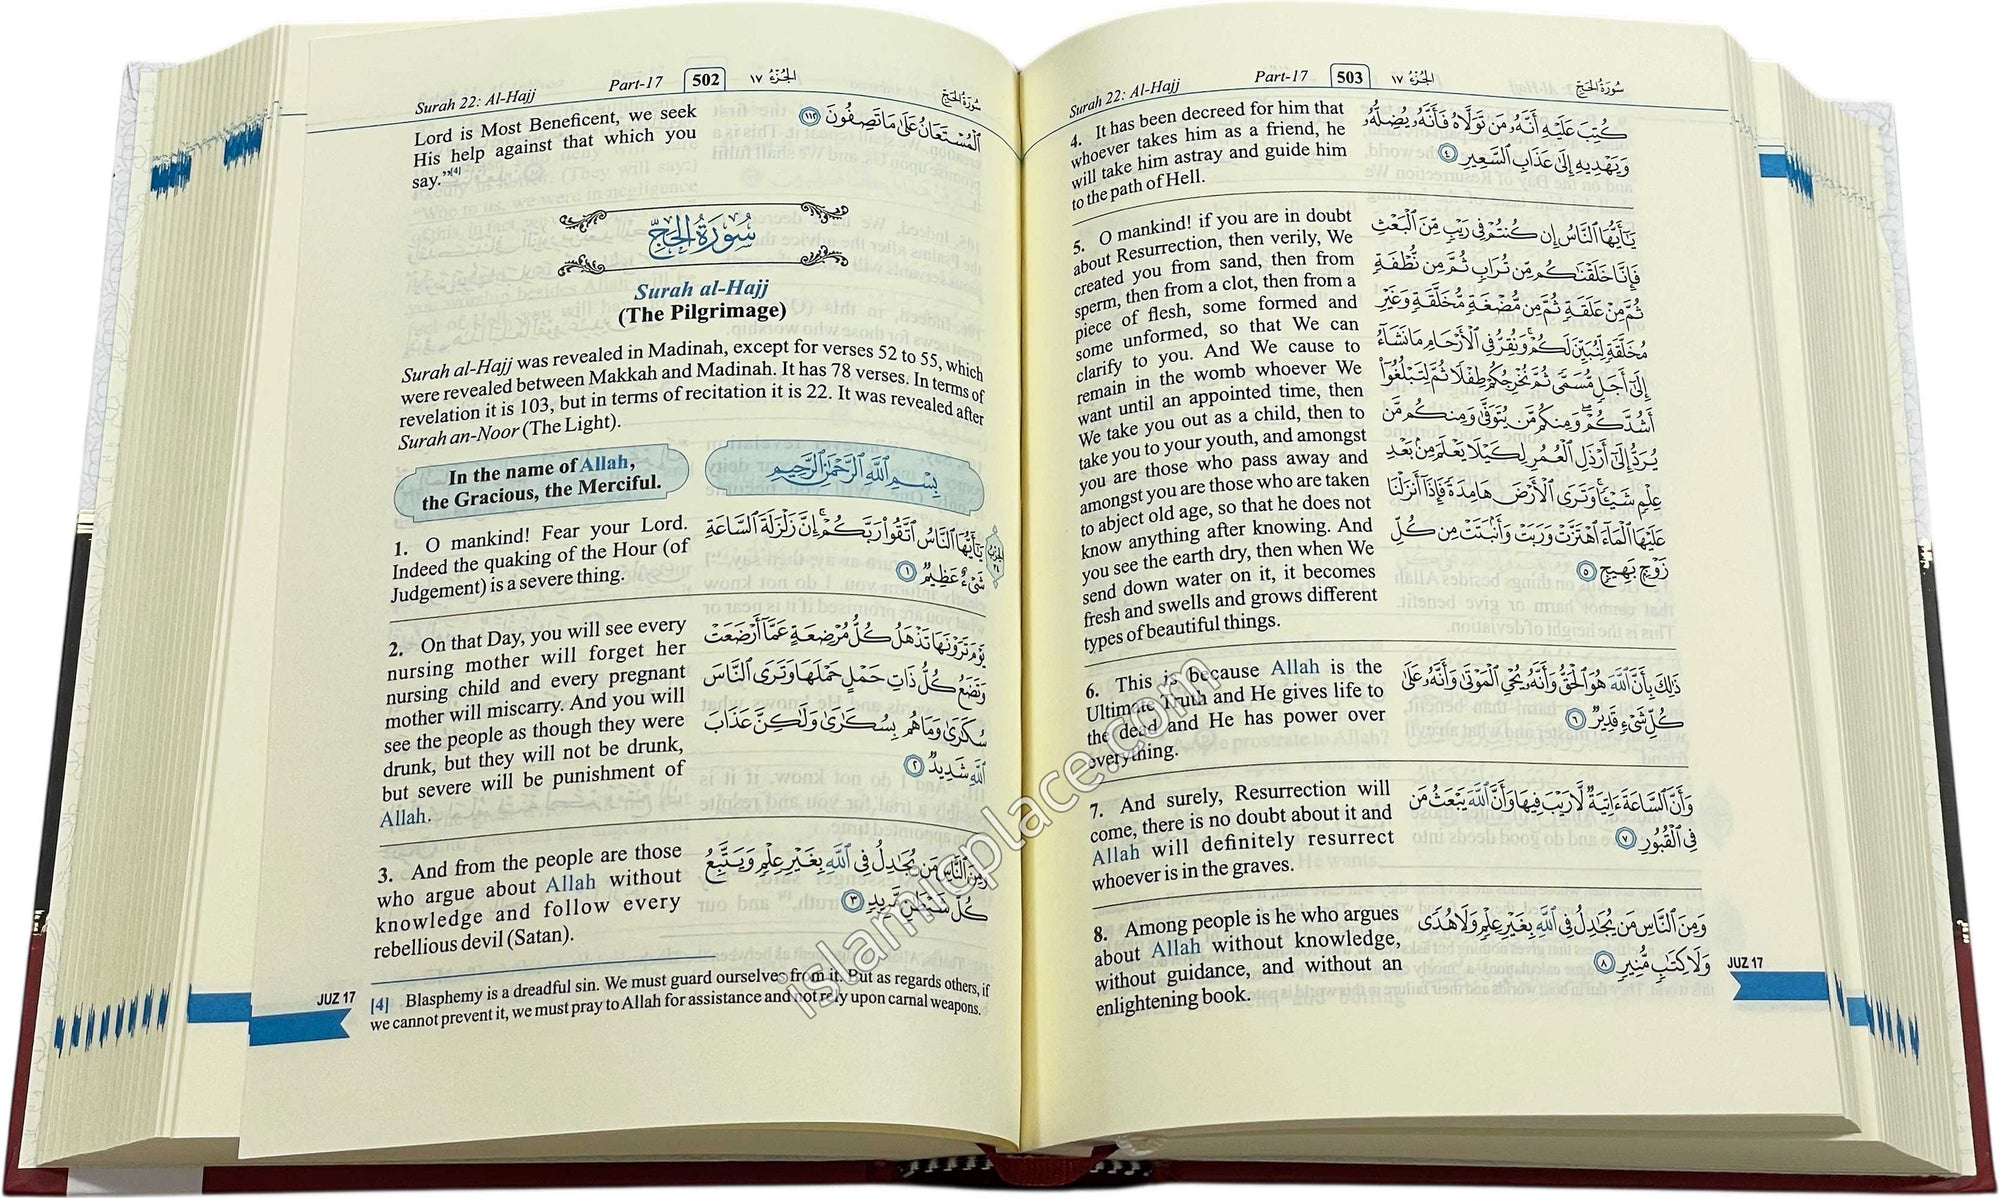 Surah 22: Al-Hajj Part-17 502 الجزء ١٧ سورة الحج
Lord is Most Beneficent, we seek
His help against that which you
say."[4]
الْمُسْتَعَانُ عَلَىٰ مَا تَصِفُونَ ١١٢
سُورَةُ الحَجِّ
Surah al-Hajj
(The Pilgrimage)
Surah al-Hajj was revealed in Madinah, except for verses 52 to 55, which
were revealed between Makkah and Madinah. It has 78 verses. In terms of
revelation it is 103, but in terms of recitation it is 22. It was revealed after
Surah an-Noor (The Light).
In the name of Allah,
the Gracious, the Merciful.
بِسْمِ اللَّهِ الرَّحْمَٰنِ الرَّحِيمِ
1. O mankind! Fear your Lord.
Indeed the quaking of the Hour (of
Judgement) is a severe thing.
يَا أَيُّهَا النَّاسُ اتَّقُوا رَبَّكُمْ إِنَّ زَلْزَلَةَ السَّاعَةِ
شَيْءٌ عَظِيمٌ ١
2. On that Day, you will see every
nursing mother will forget her
nursing child and every pregnant
mother will miscarry. And you will
see the people as though they were
drunk, but they will not be drunk,
but severe will be punishment of
Allah.
يَوْمَ تَرَوْنَهَا تَذْهَلُ كُلُّ مُرْضِعَةٍ عَمَّا أَرْضَعَتْ
وَتَضَعُ كُلُّ ذَاتِ حَمْلٍ حَمْلَهَا وَتَرَى النَّاسَ
سُكَارَىٰ وَمَا هُم بِسُكَارَىٰ وَلَٰكِنَّ عَذَابَ
اللَّهِ شَدِيدٌ ٢
3. And from the people are those
who argue about Allah without
knowledge and follow every
rebellious devil (Satan).
وَمِنَ النَّاسِ مَن يُجَادِلُ فِي اللَّهِ بِغَيْرِ عِلْمٍ وَيَتَّبِعُ
كُلَّ شَيْطَانٍ مَّرِيدٍ ٣
[4] Blasphemy is a dreadful sin. We must guard ourselves from it. But as regards others, if
we cannot prevent it, we must pray to Allah for assistance and not rely upon carnal weapons.
JUZ 17
Surah 22: Al-Hajj Part-17 503 الجزء ١٧ سورة الحج
4. It has been decreed for him that
whoever takes him as a friend, he
will take him astray and guide him
to the path of Hell.
كُتِبَ عَلَيْهِ أَنَّهُ مَن تَوَلَّاهُ فَأَنَّهُ يُضِلُّهُ
وَيَهْدِيهِ إِلَىٰ عَذَابِ السَّعِيرِ ٤
5. O mankind! if you are in doubt
about Resurrection, then verily, We
created you from sand, then from
sperm, then from a clot, then from a
piece of flesh, some formed and
some unformed, so that We can
clarify to you. And We cause to
remain in the womb whoever We
want until an appointed time, then
We take you out as a child, then to
take you to your youth, and amongst
you are those who pass away and
amongst you are those who are taken
to abject old age, so that he does not
know anything after knowing. And
you see the earth dry, then when We
send down water on it, it becomes
fresh and swells and grows different
types of beautiful things.
يَا أَيُّهَا النَّاسُ إِن كُنتُمْ فِي رَيْبٍ مِّنَ الْبَعْثِ
فَإِنَّا خَلَقْنَاكُم مِّن تُرَابٍ ثُمَّ مِن نُّطْفَةٍ
ثُمَّ مِنْ عَلَقَةٍ ثُمَّ مِن مُّضْغَةٍ مُّخَلَّقَةٍ وَغَيْرِ
مُخَلَّقَةٍ لِّنُبَيِّنَ لَكُمْ وَنُقِرُّ فِي الْأَرْحَامِ مَا نَشَاءُ
إِلَىٰ أَجَلٍ مُّسَمًّى ثُمَّ نُخْرِجُكُمْ طِفْلًا ثُمَّ لِتَبْلُغُوا
أَشُدَّكُمْ وَمِنكُم مَّن يُتَوَفَّىٰ وَمِنكُم مَّن
يُرَدُّ إِلَىٰ أَرْذَلِ الْعُمُرِ لِكَيْلَا يَعْلَمَ مِن بَعْدِ
عِلْمٍ شَيْئًا وَتَرَى الْأَرْضَ هَامِدَةً فَإِذَا أَنزَلْنَا
عَلَيْهَا الْمَاءَ اهْتَزَّتْ وَرَبَتْ وَأَنبَتَتْ مِن كُلِّ
زَوْجٍ بَهِيجٍ ٥
6. This is because Allah is the
Ultimate Truth and He gives life to
the dead and He has power over
everything.
ذَٰلِكَ بِأَنَّ اللَّهَ هُوَ الْحَقُّ وَأَنَّهُ يُحْيِي الْمَوْتَىٰ وَأَنَّهُ عَلَىٰ
كُلِّ شَيْءٍ قَدِيرٌ ٦
7. And surely, Resurrection will
come, there is no doubt about it and
Allah will definitely resurrect
whoever is in the graves.
وَأَنَّ السَّاعَةَ آتِيَةٌ لَّا رَيْبَ فِيهَا وَأَنَّ اللَّهَ يَبْعَثُ مَن
فِي الْقُبُورِ ٧
8. Among people is he who argues
about Allah without knowledge,
without guidance, and without an
enlightening book.
وَمِنَ النَّاسِ مَن يُجَادِلُ فِي اللَّهِ بِغَيْرِ عِلْمٍ وَلَا هُدًى
وَلَا كِتَابٍ مُّنِيرٍ ٨
JUZ 17
islamicplace.com